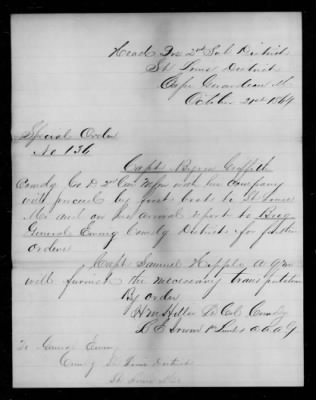 Head Qrs 2nd Sub District
St Louis District
Cape Girardeau Mo
October 21st 1864
Special Order
No 136
Capt Griffith
Comdg Co D 2nd Cav M S M with his company
will proceed by first boat to St Louis
Mo and on his arrival report to Brig
General Ewing Comdg District for further
orders
Capt Samuel A Q M
will furnish the necessary transportation
By order
Hiller Lt Col Comdg
Lieut & A A A G
To General Ewing
Comdg St Louis District
St Louis Mo